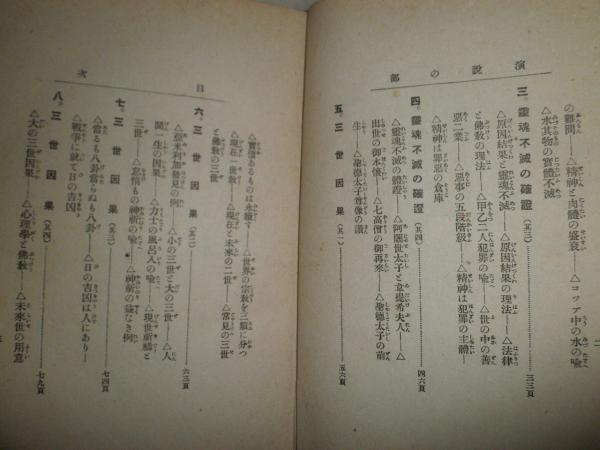 演說の部
の顧問――△精神と肉體の盛衰――△コップ中の水の喩
△水其物の實體不滅
三、靈魂不滅の確證(其三)……三三頁
△原因結果と靈魂不滅――△原因結果の理法――△法律
と佛敎の理法――△甲乙二人犯罪の喩――△世の中の善
惡二業――△惡事の五段階級――△精神は犯罪の主體――
△精神は罪惡の倉庫
四、靈魂不滅の確證(其四)……四六頁
△靈魂不滅の體證――△阿闍世太子と韋提希夫人――△
出世の御本懷――△七高僧の御再來――△聖德太子の前
生――△聖德太子尊像の讚
五、三世因果(其一)……五六頁
目次
△實信なるものは永續す――△世界の宗敎を三類に分つ
△現在一世敎――△現在と未來の二世――△常見の三世
と佛敎の三世
六、三世因果(其二)……六三頁
△亞米利加發見の例――△小の三世と大の三世――△人
間一生の因果――△力士の風呂入の喩――△現世祈禱と
三世――△怠惰もの神祈の喩――△神祈の益なき例
七、三世因果(其三)……七四頁
△當るも八卦當らぬも八卦――△日の吉凶は人にあり――
△戰爭に就て日の吉凶
八、三世因果(其四)……七九頁
△大の三世因果――△心理學と佛敎――△未來世の用意
二
三